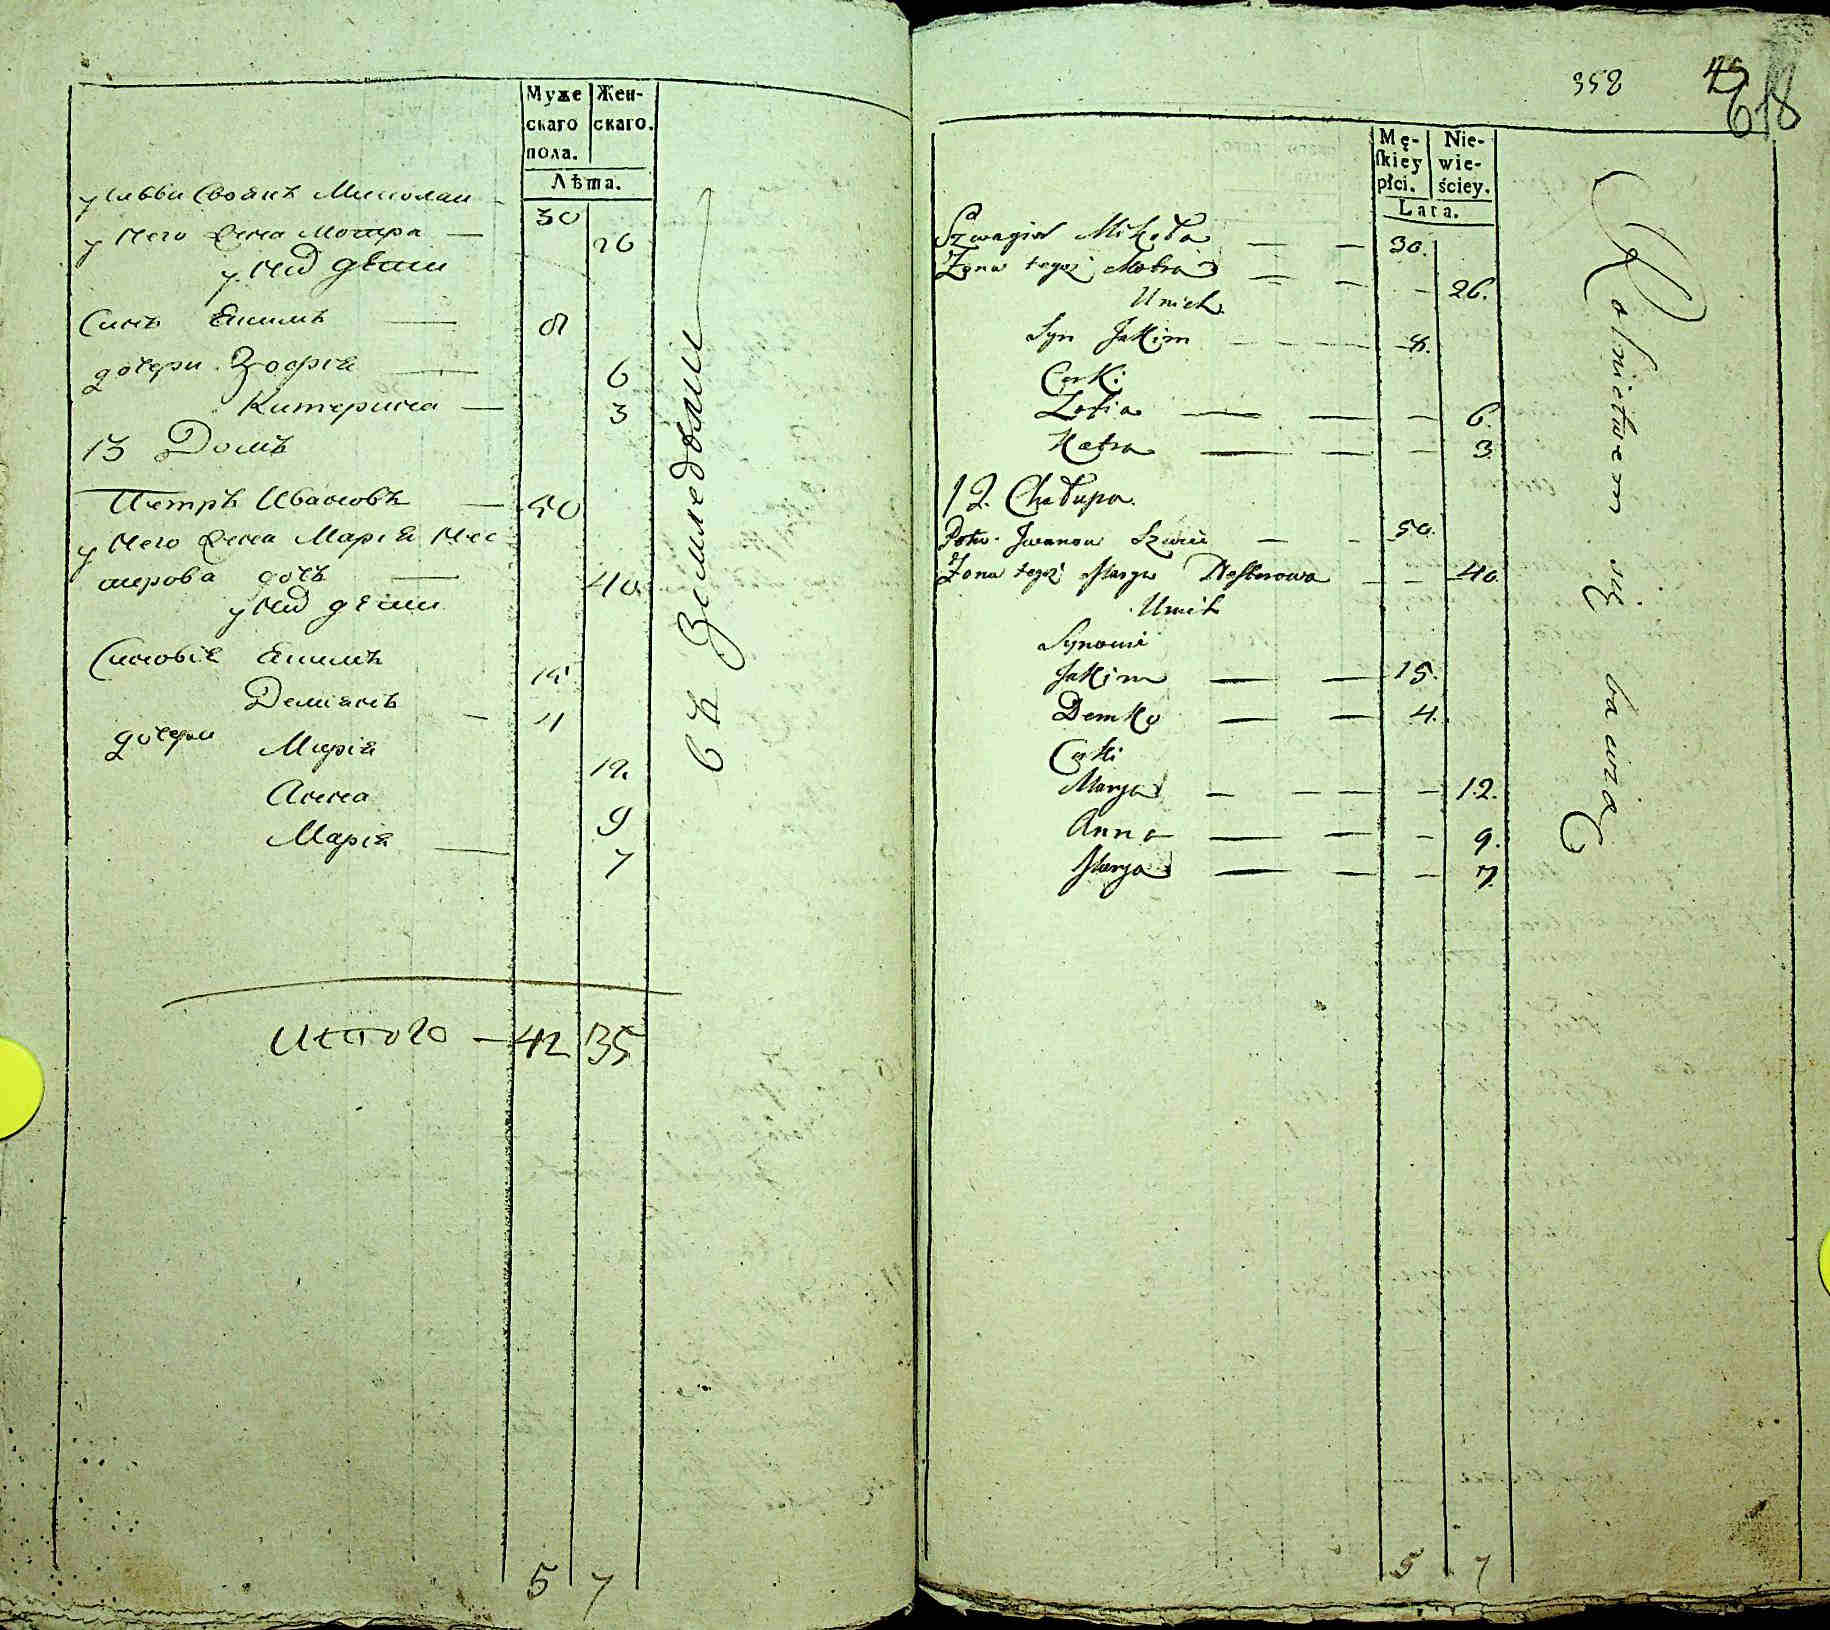 Муже Жен-
скаго скаго.
пола.
Лѣта.
Своякъ Миколаи 30
у него жена Мотра — 26
у нид дѣти
Синъ Якимъ — 8
дочери Зофрія — 6
Катерина — 3
13 Домъ
Петръ Ивановъ — 50
у него жена Марія Нес
терова дочь — 40
у нид дѣти
Синовіе Якимъ 15
Демianъ — 4
дочери Марія 12
Анна 9
Марія — 7
Итого — 42 35
5 7
358 618
Mę- Nie-
skiey wie-
płci. ściey.
Lata.
Szwagier Mikoła — — 30.
Żona tegoż Motra — — — 26.
Unich
Syn Jakim — — — 8.
Corki
Zofia — — — 6.
Katra — — — 3
12. Chałupa
Iwanow — — 50.
Żona tegoż Marya Nesterowa — — 40
Unich
Synowie
Jakim — — 15.
Demko — — 4.
Corki
Marya — — — — 12.
Anna — — 9.
Marya — — — 7.
Rolnictwem się bawią
5 7